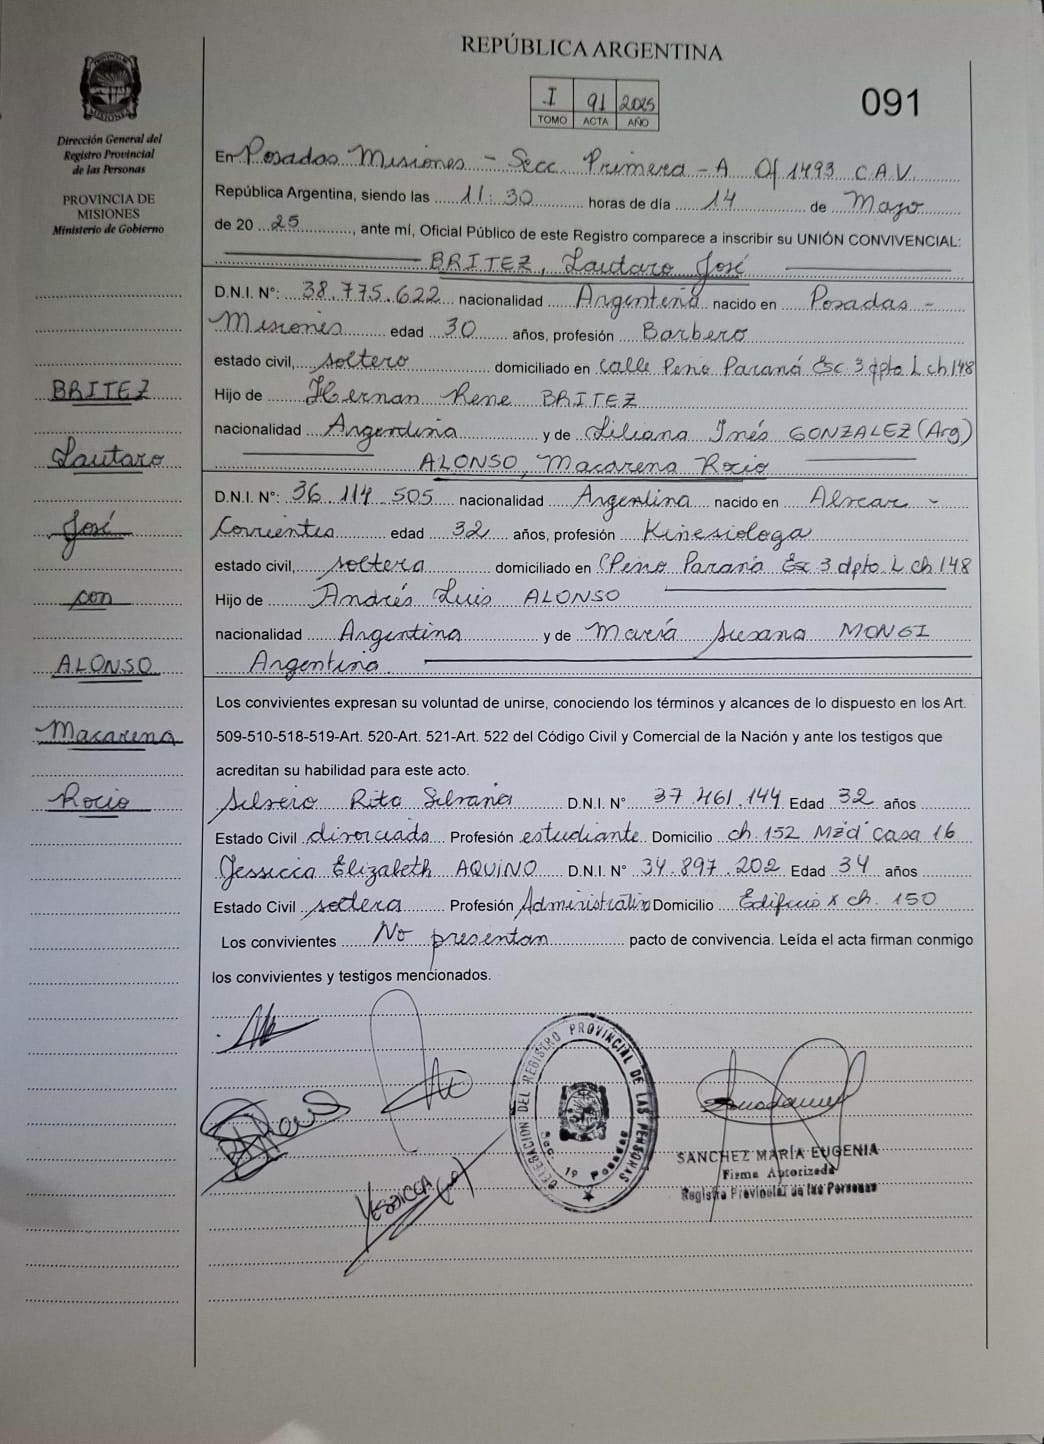 REPÚBLICA ARGENTINA
I 91 2025
TOMO ACTA AÑO
091
Dirección General del
Registro Provincial
de las Personas
PROVINCIA DE
MISIONES
Ministerio de Gobierno
BRITEZ
Lautaro
José
con
ALONSO
Macarena
Rocio
En Posadas Misiones - Secc Primera - A Of 1493 C.A.V.
República Argentina, siendo las 11:30 horas de día 14 de Mayo
de 20 25, ante mí, Oficial Público de este Registro comparece a inscribir su UNIÓN CONVIVENCIAL:
BRITEZ, Lautaro José
D.N.I. N°: 38.775.622 nacionalidad Argentina nacido en Posadas -
Misiones edad 30 años, profesión Barbero
estado civil, soltero domiciliado en calle Peno Paraná Esc. 3 dpto L ch 148
Hijo de Hernan Rene BRITEZ
nacionalidad Argentina y de Liliana Inés GONZALEZ (Arg)
ALONSO, Macarena Rocio
D.N.I. N°: 36 114 505 nacionalidad Argentina nacido en Alvear -
Corrientes edad 32 años, profesión Kinesiologa
estado civil, soltera domiciliado en C Peno Paraná Esc 3 dpto. L ch 148
Hijo de Andrés Luis ALONSO
nacionalidad Argentina y de María Susana MONGI
Argentina.
Los convivientes expresan su voluntad de unirse, conociendo los términos y alcances de lo dispuesto en los Art.
509-510-518-519-Art. 520-Art. 521-Art. 522 del Código Civil y Comercial de la Nación y ante los testigos que
acreditan su habilidad para este acto.
Silvero Rita Silvana D.N.I. N° 37.461.144 Edad 32 años
Estado Civil divorciada Profesión estudiante Domicilio ch. 152 Mzd casa 16
Jessicca Elizabeth AQUINO D.N.I. N° 34.897.202 Edad 34 años
Estado Civil soltera Profesión Administrativa Domicilio Edificio x ch. 150
Los convivientes No presentan pacto de convivencia. Leída el acta firman conmigo
los convivientes y testigos mencionados.
DELEGACION DEL REGISTRO PROVINCIAL DE LAS PERSONAS
Sec. 1º Posadas
YESSICCA
SANCHEZ MARÍA EUGENIA
Firma Autorizada
Registro Provincial de las Personas